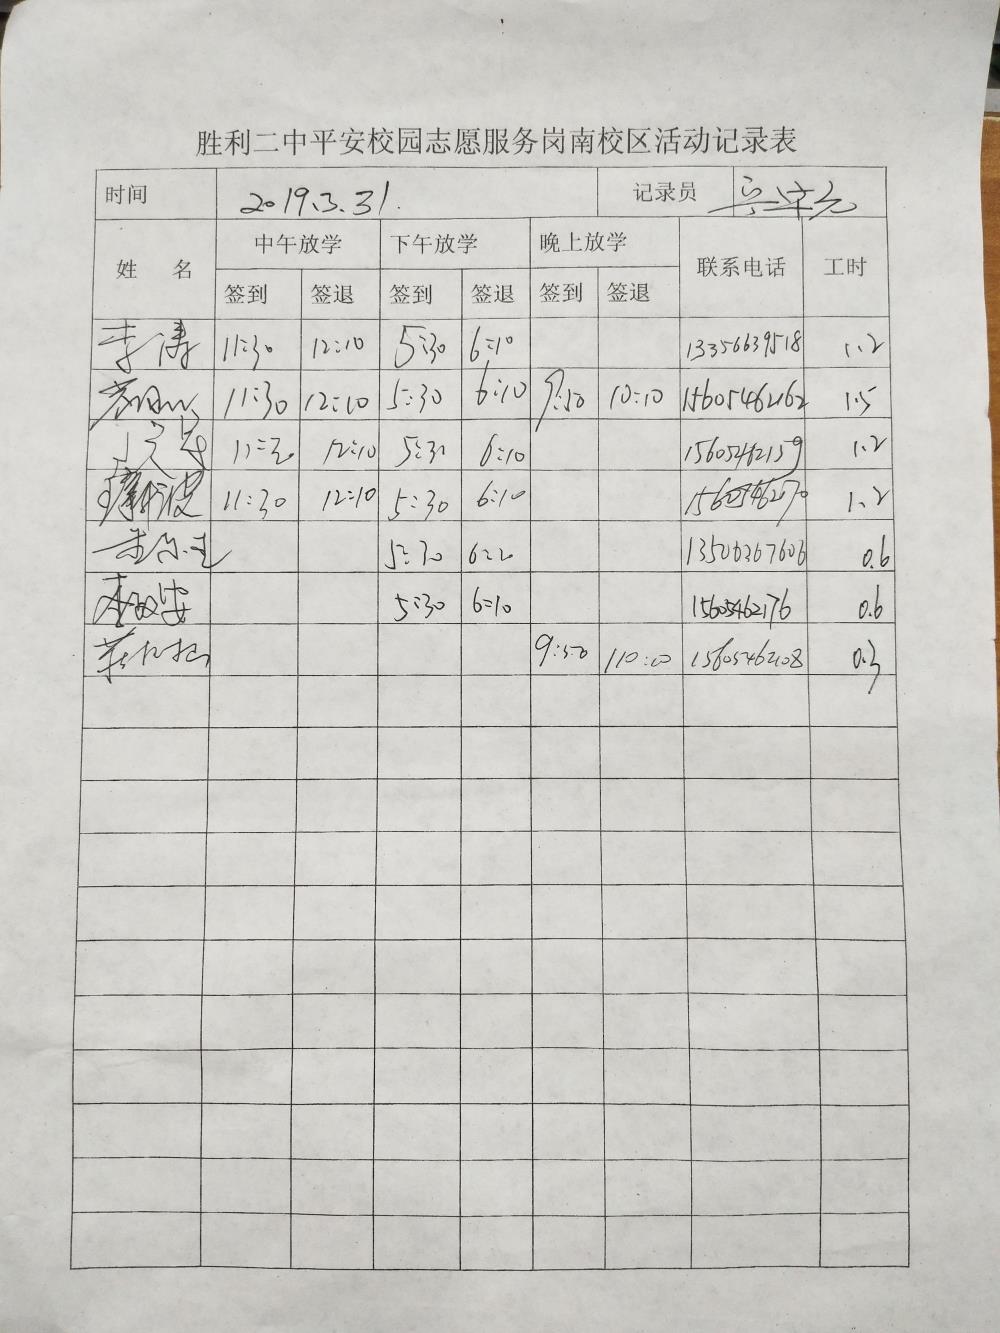 胜利二中平安校园志愿服务岗南校区活动记录表
时间 2019.3.31. 记录员
姓 名 中午放学 下午放学 晚上放学 联系电话 工时
签到 签退 签到 签退 签到 签退
李涛 11:30 12:10 5:30 6:10 13356639518 1.2
11:30 12:10 5:30 6:10 9:50 10:10 15605462162 1.5
12:10 5:30 6:10 15605462159 1.2
11:30 12:10 5:30 6:10 15605462170 1.2
5:30 13506367606 0.6
5:30 6:10 15605462176 0.6
9:50 15605462108 0.3